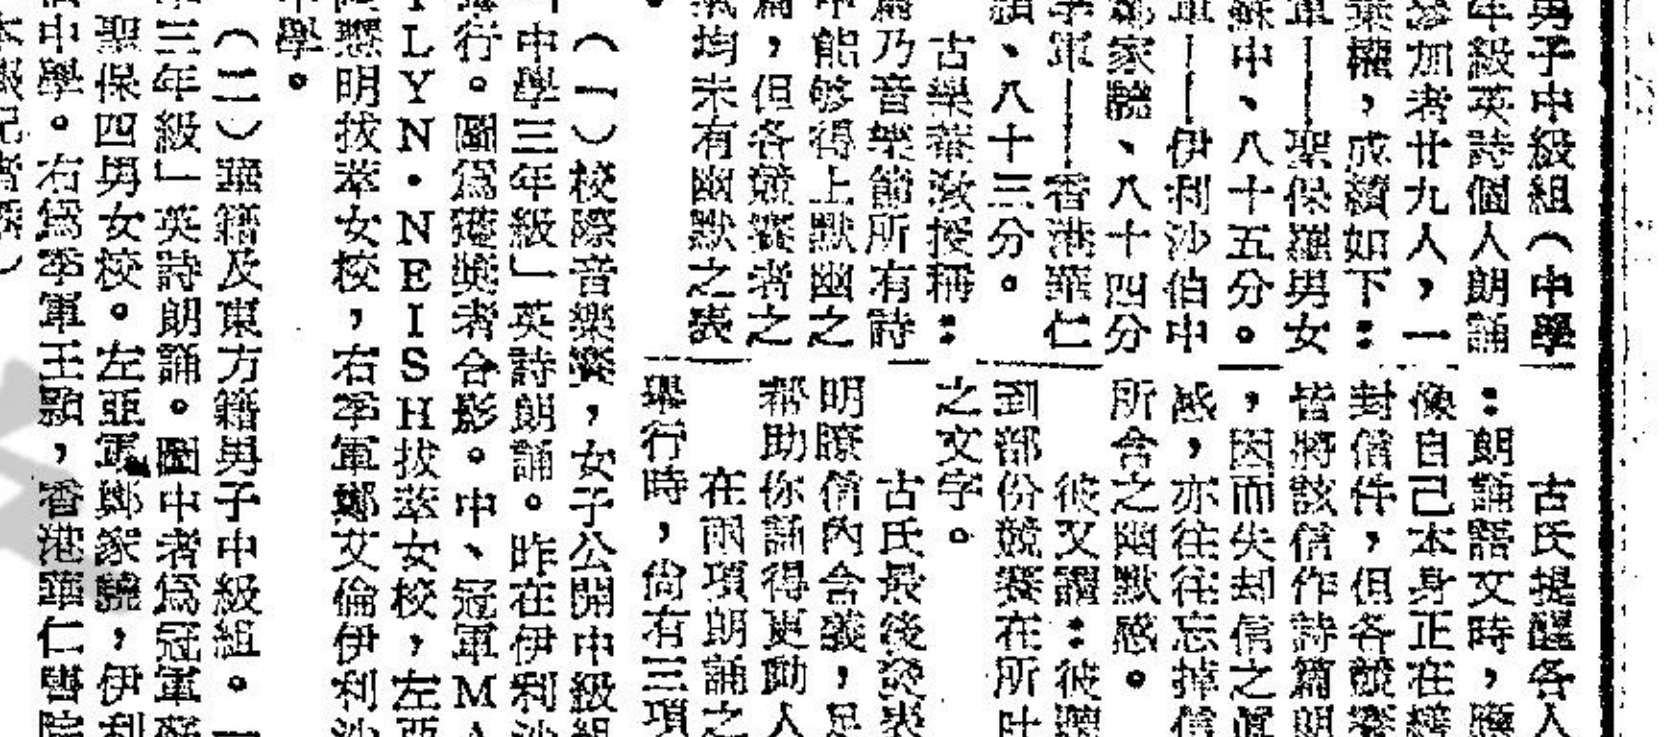 男子中級組（中學
年級英詩個人朗誦
參加者廿九人，一
棄權，成績如下：
軍——聖保羅男女
蘇中、八十五分。
軍——伊利沙伯中
鄭家驍、八十四分
季軍——香港華仁
顯、八十三分。
古樂菴教授稱：
篇乃音樂節所有詩
中能够得上默幽之
篇，但各競賽者之
氣均未有幽默之表
。
古氏提醒各人
：朗誦語文時，應
像自己本身正在
封信件，但各競賽
皆將該信作詩篇朗
，因而失却信之眞
感，亦往往忘掉信
所含之幽默感。
彼又謂：彼聽
到部份競賽在所吐
之文字。
古氏最後
明瞭信內含義，足
帮助你誦得更動人
在兩項朗誦之
舉行時，尙有三項
（一）校際音樂賽，女子公開中級組
中學三年級」英詩朗誦。昨在伊利沙
行。圖爲獲奬者合影。中、冠軍MA
LYN·NEISH拔萃女校，左亞
懸明拔萃女校，右季軍鄭艾倫伊利沙
中學。
（二）華籍及東方籍男子中級組。一
三年級」英詩朗誦。圖中者爲冠軍蘇
聖保四男女校。左亞軍鄭家驍，伊利
中學。右爲季軍王顯，香港華仁書院
本報記者